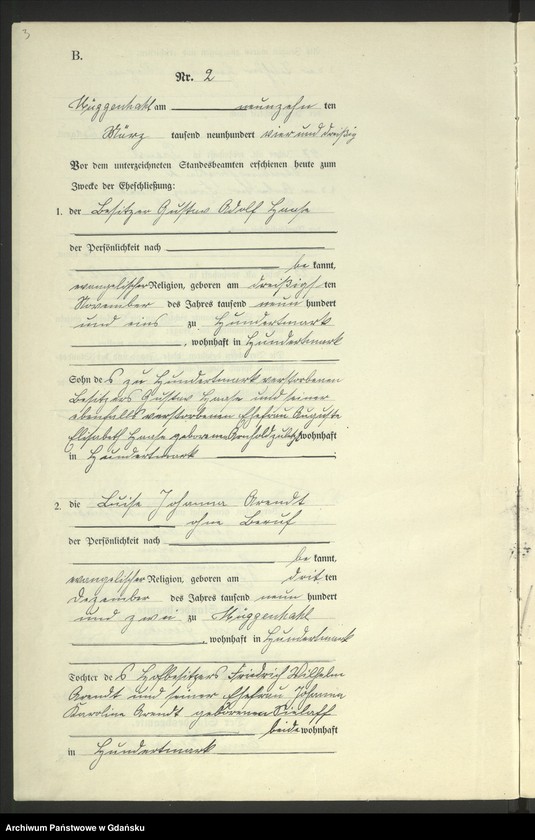 3
B.
Nr. 2
Müggenhahl am neunzehn ten
März tausend neunhundert vier und dreißig
Vor dem unterzeichneten Standesbeamten erschienen heute zum
Zwecke der Eheschließung:
1. der Besitzer Gustav Adolf Haase
der Persönlichkeit nach
be kannt,
evangelischer Religion, geboren am dreißigs ten
November des Jahres tausend neun hundert
und eins zu Hundertmark
, wohnhaft in Hundertmark
Sohn de s zu Hundertmark verstorbenen
Besitzers Gustav Haase und seiner
ebenfalls verstorbenen Ehefrau Auguste
Elisabeth Haase geborenen Arnhold zuletzt wohnhaft
in Hundertmark
2. die Luise Johanna Arendt
ohne Beruf
der Persönlichkeit nach
be kannt,
evangelischer Religion, geboren am drit ten
Dezember des Jahres tausend neun hundert
und zwei zu Müggenhahl
, wohnhaft in Hundertmark
Tochter de s Hofbesitzers Friedrich Wilhelm
Arendt und seiner Ehefrau Johanna
Karoline Arendt geborenen Sielaff
beide wohnhaft
in Hundertmark
Archiwum Państwowe w Gdańsku